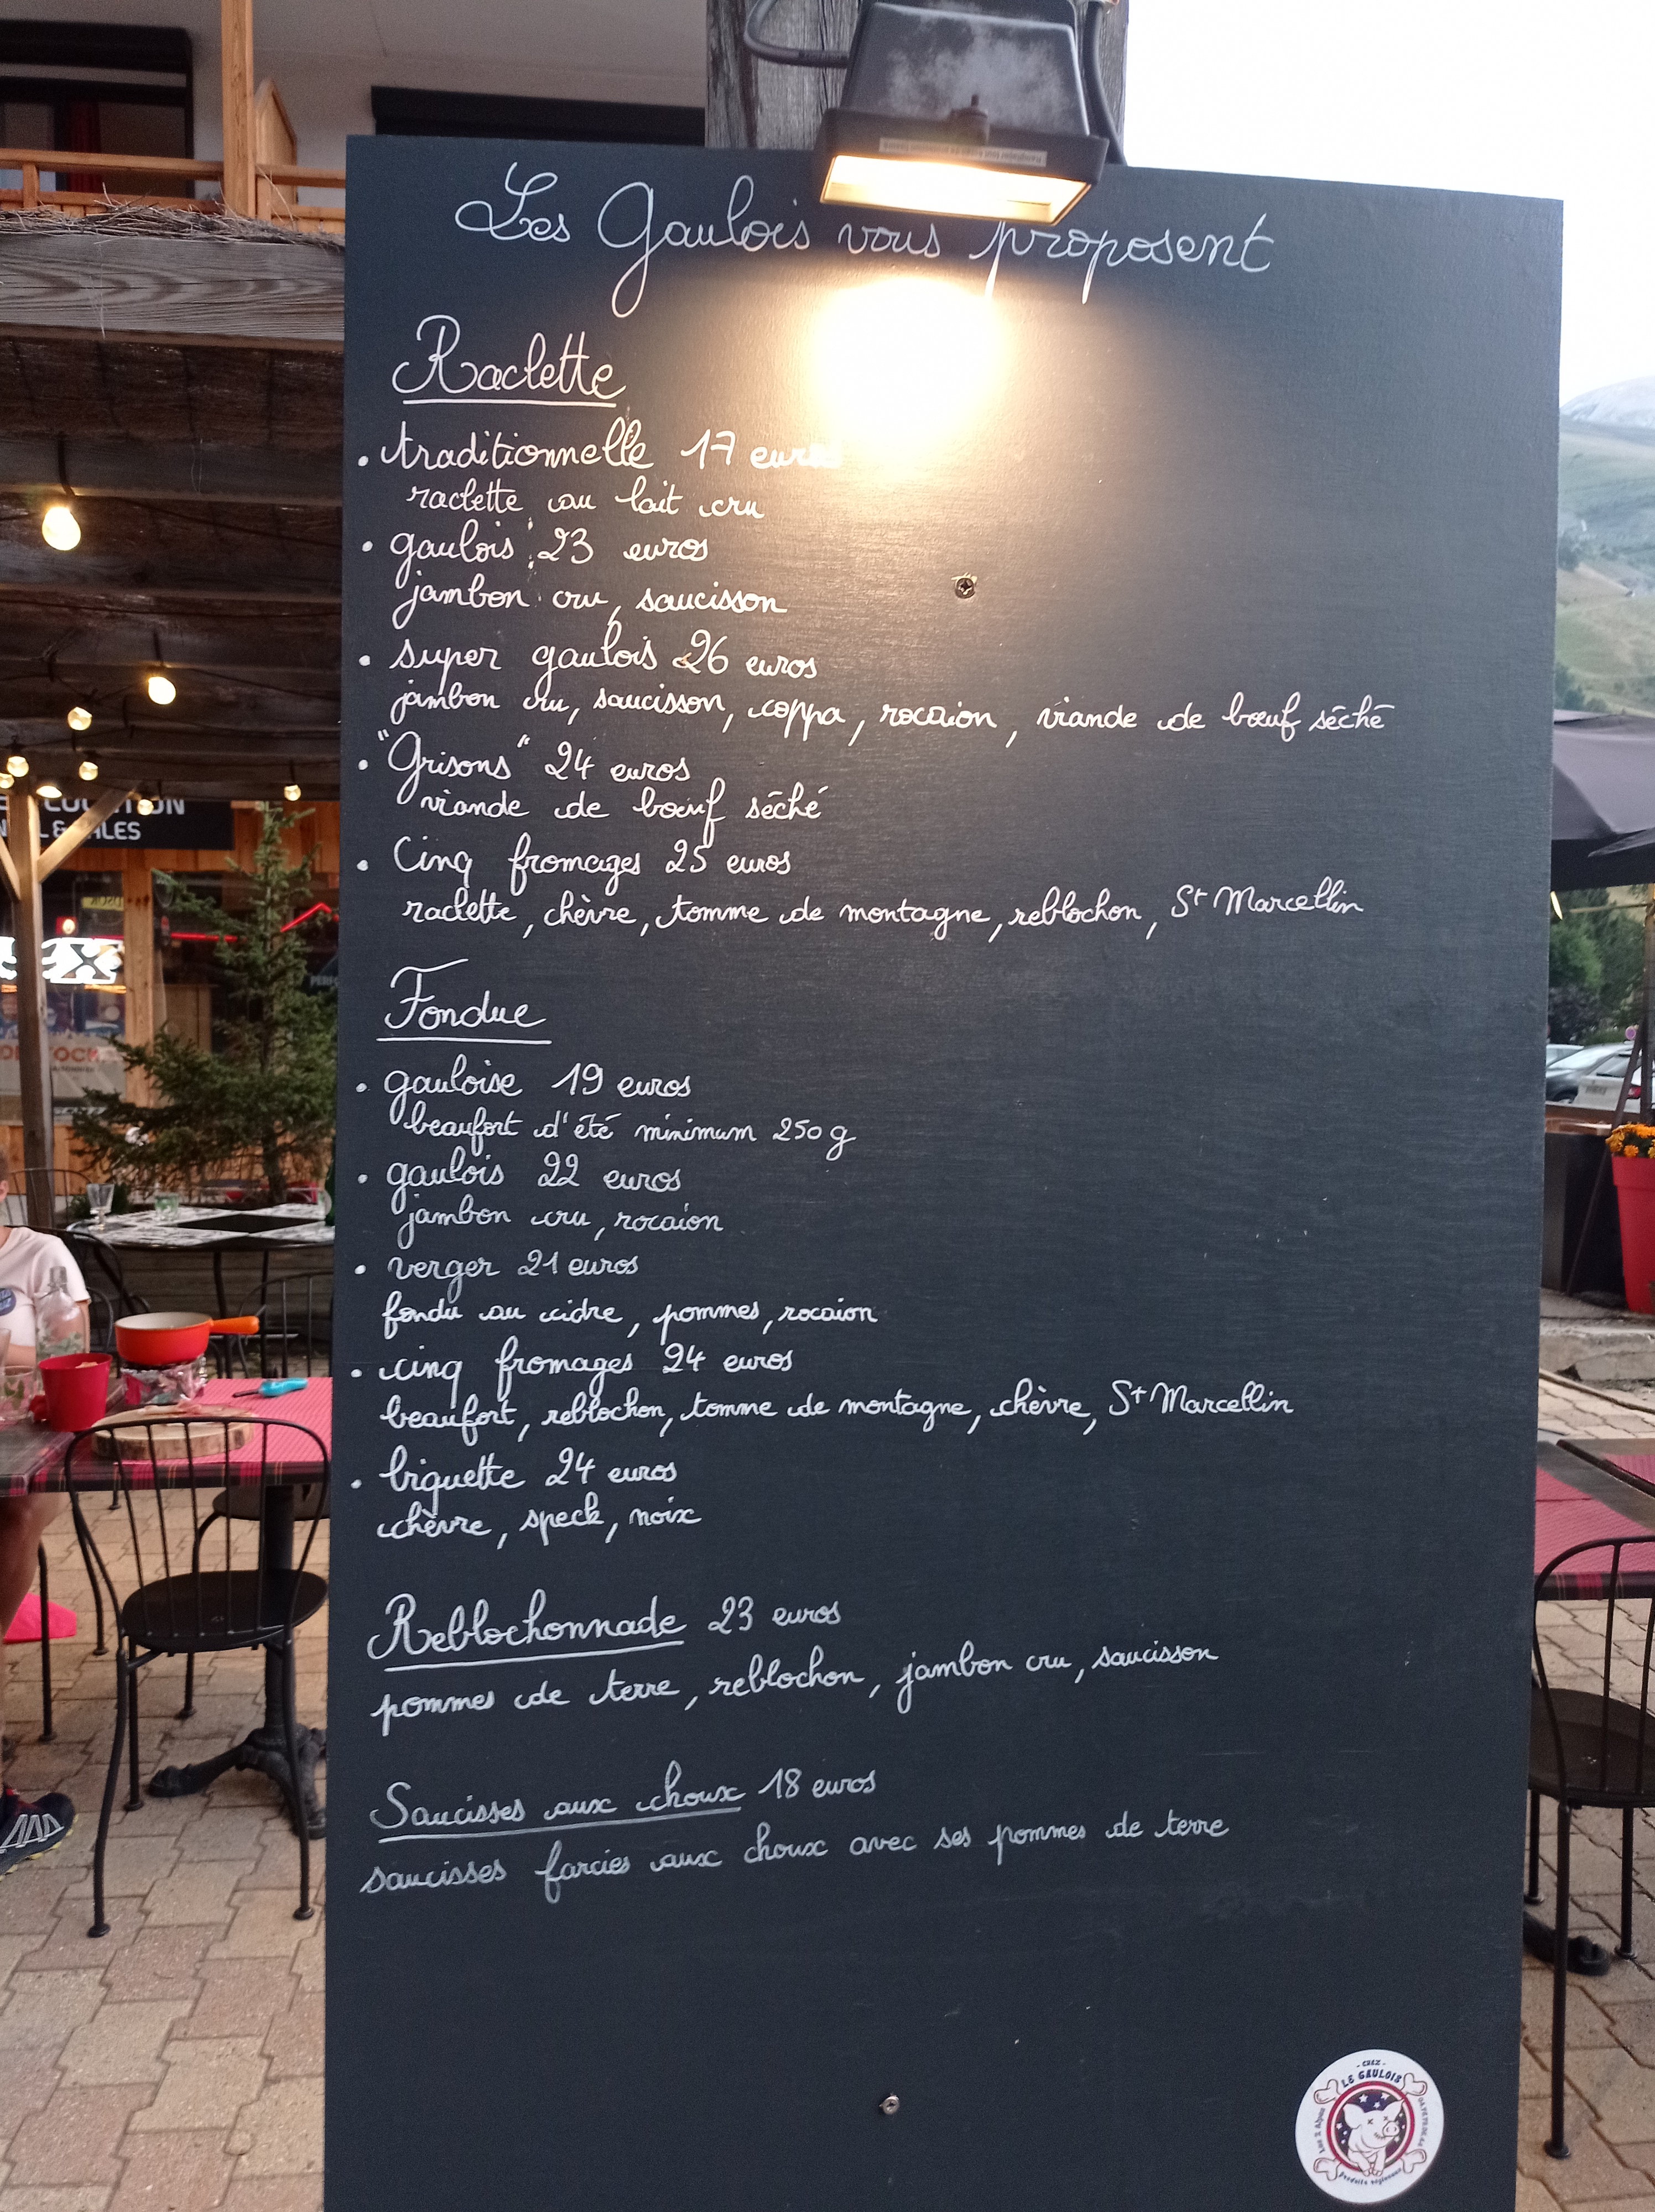 Les Gaulois vous proposent
Raclette
. traditionnelle 17 euros
raclette au lait cru
. gaulois 23 euros
jambon cru, saucisson
. super gaulois 26 euros
jambon cru, saucisson, coppa, rocaion, viande de bœuf séché
. "Grisons" 24 euros
viande de bœuf séché
. Cinq fromages 25 euros
raclette, chèvre, tomme de montagne, reblochon, St Marcellin
Fondue
. gauloise 19 euros
beaufort d'été minimum 250 g
. gaulois 22 euros
jambon cru, rocaion
. verger 21 euros
fondu au cidre, pommes, rocaion
. cinq fromages 24 euros
beaufort, reblochon, tomme de montagne, chèvre, St Marcellin
. biquette 24 euros
chèvre, speck, noix
Reblochonnade 23 euros
pommes de terre, reblochon, jambon cru, saucisson
Saucisses aux choux 18 euros
saucisses farcies aux choux avec ses pommes de terre
- CHEZ -
LE GAULOIS
Les 2 Alpes
Produits régionaux